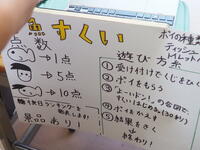 魚すくい
点数
→1点
→5点
→10点
景品あり!
ポイの種類
ティッシュ
トイレット
遊び方
①受け付けでくじをひく
②ポイをもらう
③「よーいドン!」の合図で、
すくいはじめる(30秒)
⑤結果をきく
終わり!